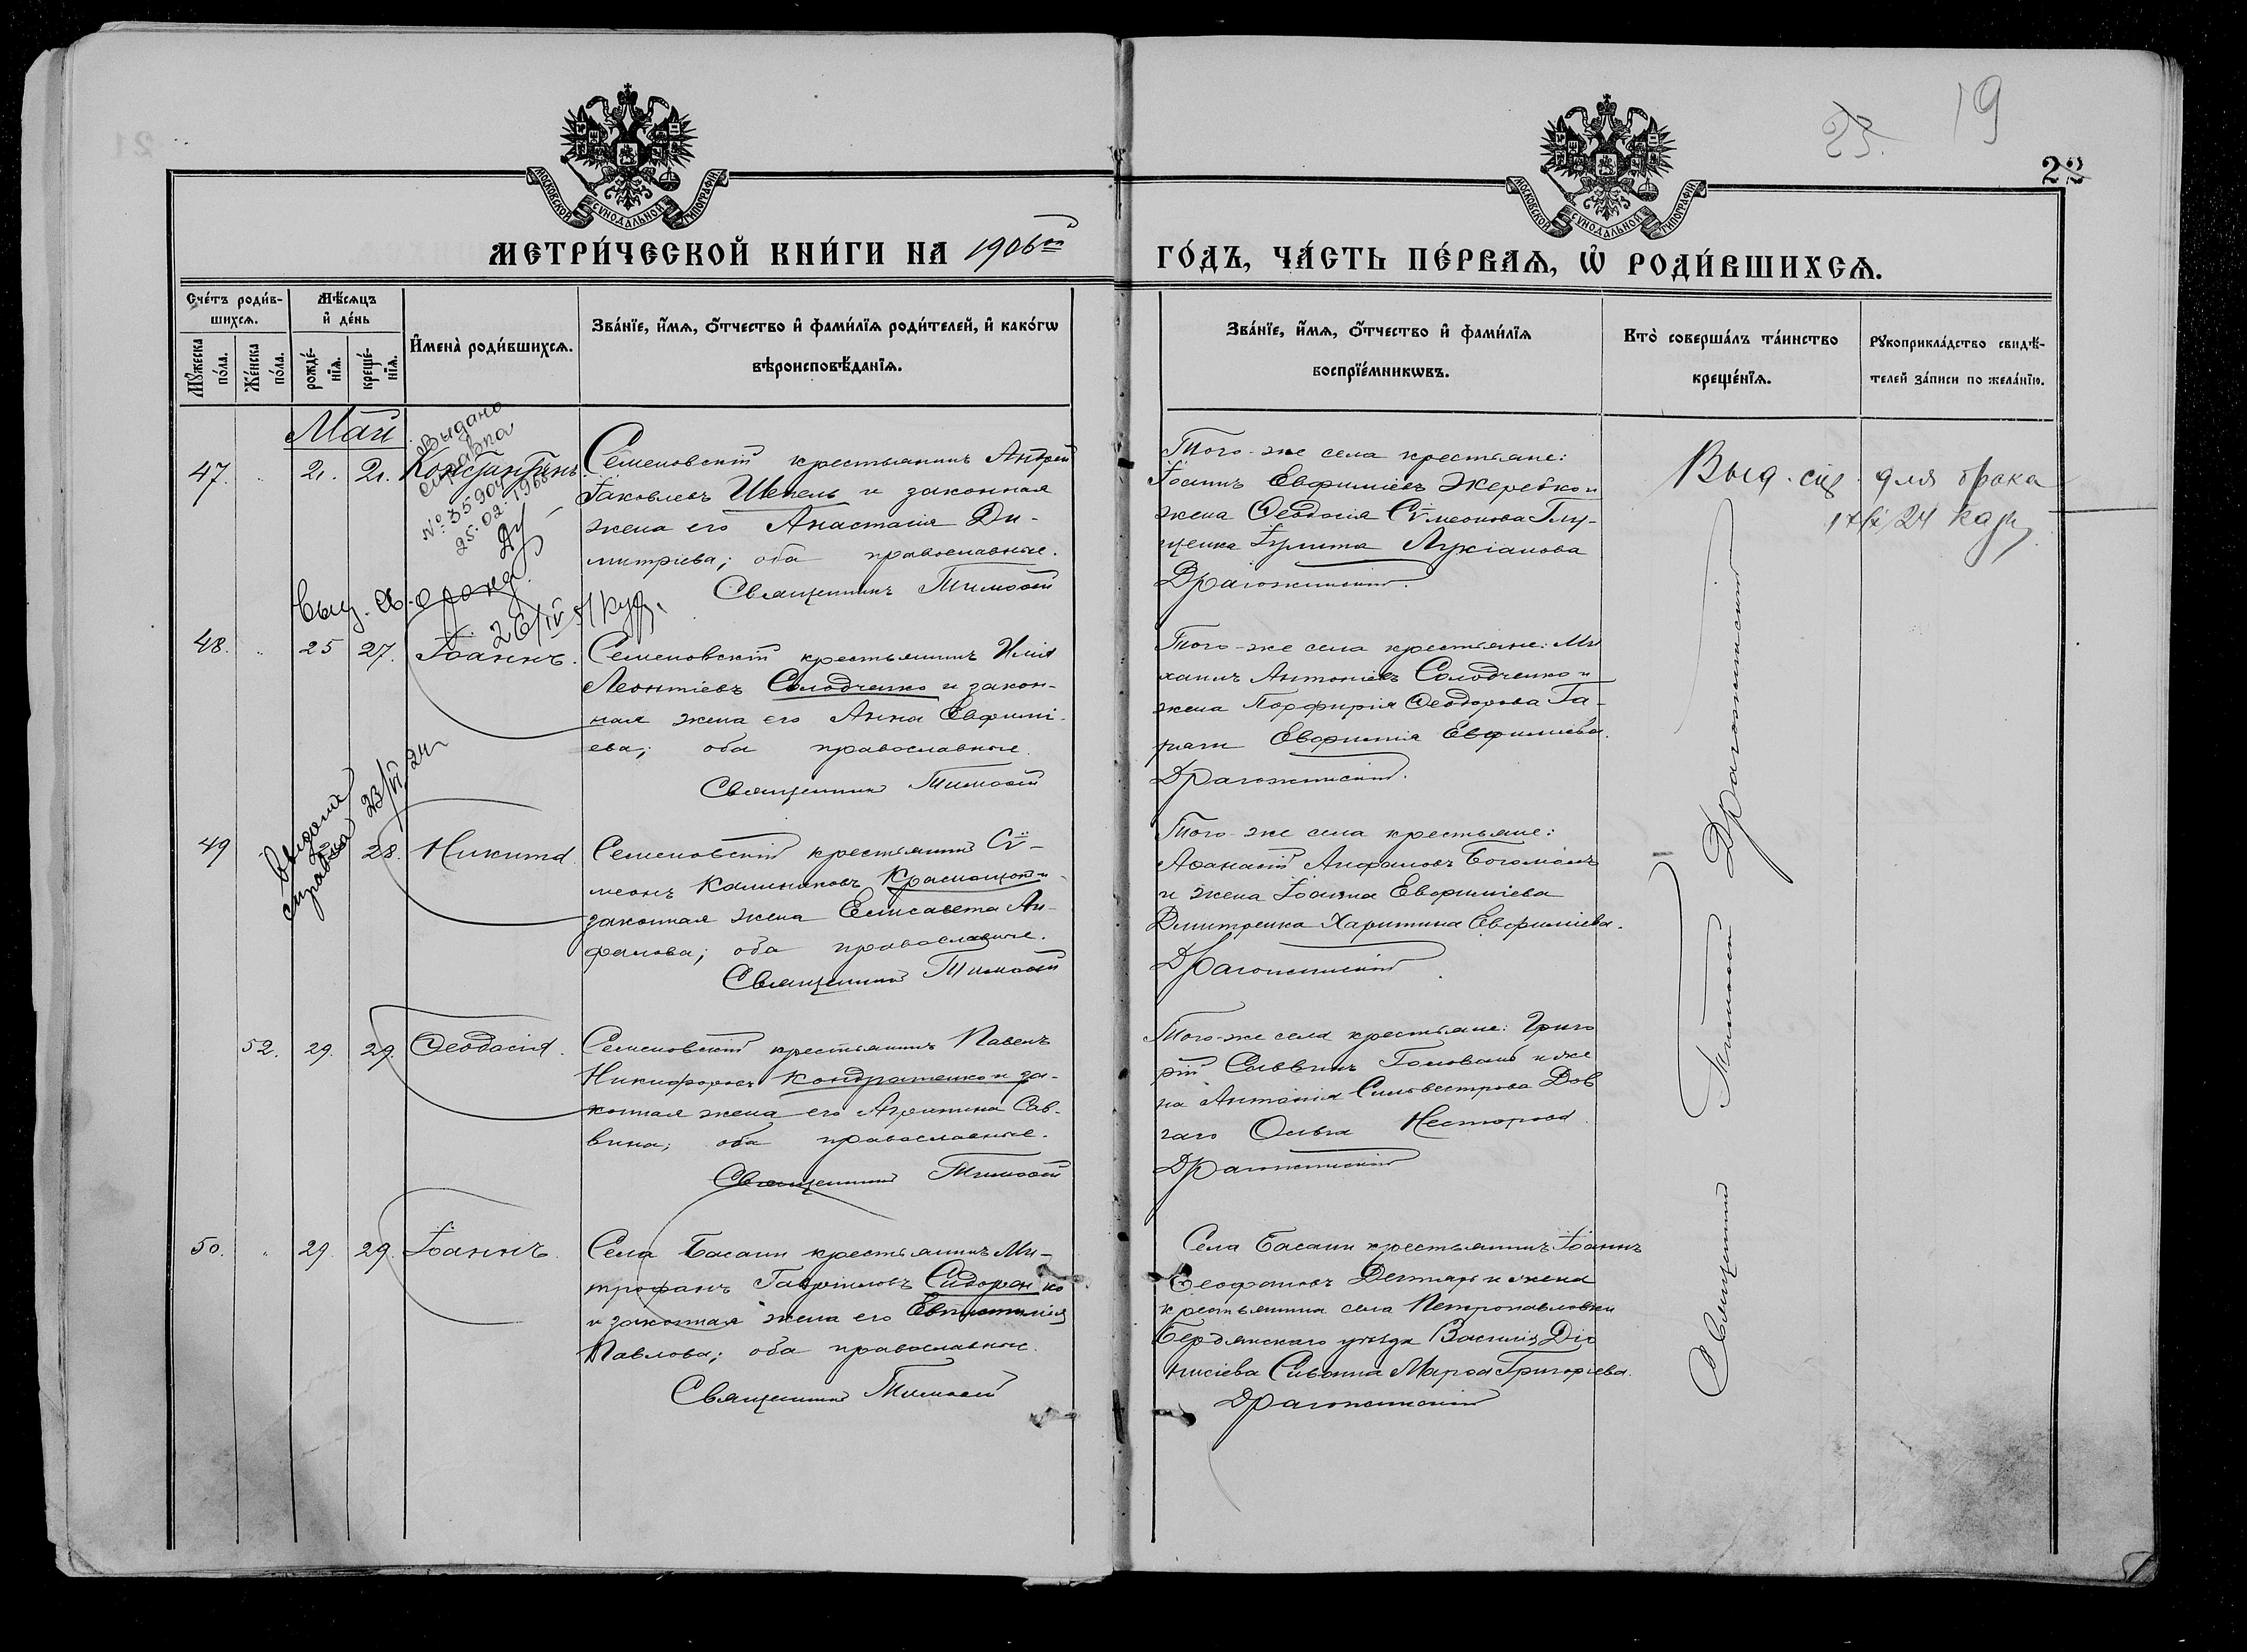 19
23.
22
МОСКОВСКОЙ СѴНОДАЛЬНОЙ ТИПОГРАФІИ
МОСКОВСКОЙ СѴНОДАЛЬНОЙ ТИПОГРАФІИ
МЕТРИ́ЧЕСКОЙ КНИ́ГИ НА 1906й
ГО́ДЪ, ЧА́СТЬ ПЕ́РВАѦ, Ѡ РОДИ́ВШИХСѦ.
Сче́тъ роди́в-
шихсѧ.
Мѣ́сѧцъ
и҆ де́нь
Мꙋ́жеска по́ла.
Же́нска по́ла.
рожде́-нїѧ.
креще́-нїѧ.
И҆мена̀ роди́вшихсѧ.
Зва́нїе, и҆́мѧ, ѻ҆́тчество и҆ фами́лїѧ роди́телей, и҆ како́гѡ
вѣроисповѣ́данїѧ.
Зва́нїе, и҆́мѧ, ѻ҆́тчество и҆ фами́лїѧ
воспрїе́мникѡвъ.
Кто̀ соверша́лъ та́инство
креще́нїѧ.
Рꙋкоприкла́дство свидѣ́-
телей за́писи по жела́нїю.
Май
Выдано
справка
№ 35904
25.02.1968
47. 21. 21. Константинъ
Семеновскій крестьянинъ Андрей
Іаковлевъ Шепель и законная
жена его Анастасія Ди-
митріева; оба православные.
Священникъ Тимоѳей
Того-же села крестьяне:
Іоаннъ Евфиміевъ Жеребко и
жена Ѳеодосія Сѵмеонова Глу-
щенка Іулитта Лукіанова
Драгожинскій.
Выд. для брака
48. 25 27. Іоаннъ.
Семеновскій крестьянинъ Илія
Леонтіевъ Солодченко и закон-
ная жена его Анна Евфимі-
ева; оба православные.
Священникъ Тимоѳей
Того-же села крестьяне: Ми
хаилъ Антоніевъ Солодченко и
жена Порфирія Ѳеодорова Га-
Евфимія Евфиміева.
Драгожинскій.
выдана
справка 23/VI 24
49 28. Никита
Семеновскій крестьянинъ Сѵ-
меонъ Каллиниковъ и
законная жена Елисавета Ан-
фалова; оба православные.
Священникъ Тимоѳей
Того-же села крестьяне:
Аѳанасій Анфаловъ Богомолъ
и жена Іоанна Евфиміева
Дмитренка Харитина Евфиміева.
Драгожинскій
52. 29. 29. Ѳеодосія.
Семеновскій крестьянинъ Павелъ
Никифоровъ Кондратенко и за-
конная жена его Агриппина Сав-
вина; оба православные.
Священникъ Тимоѳей
Того-же села крестьяне: Григо
рій Саввинъ Головань и же
на Антонія Сильвестрова Дов
гаго Ольга Несторова
Драгожинскій
50. 29. 29. Іоаннъ.
Села Басани крестьянинъ Ми-
трофанъ Гавріиловъ Сидоренко
и законная жена его
Павлова; оба православные.
Священникъ Тимоѳей
Села Басани крестьянинъ Іоаннъ
Ѳеофановъ Дегтярь и жена
крестьянина села Петропавловки
Бердянскаго уѣзда Василія Діо
нисіева Марѳа Григоріева.
Драгожинскій
Священникъ Тимоѳей Драгожинскій